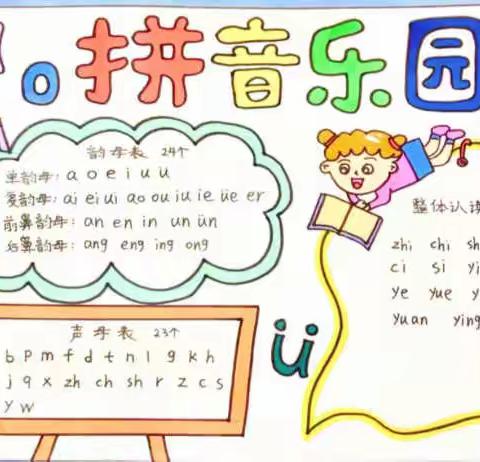 o 拼音乐园
韵母表 24个
单韵母: a o e i u ü
复韵母: ai ei ui ao ou iu ie üe er
前鼻韵母: an en in un ün
后鼻韵母: ang eng ing ong
声母表 23个
b p m f d t n l g k h
j q x zh ch sh r z c s
y w
ü
整体认读
zhi chi sh
ci si yi
ye yue y
yuan ying